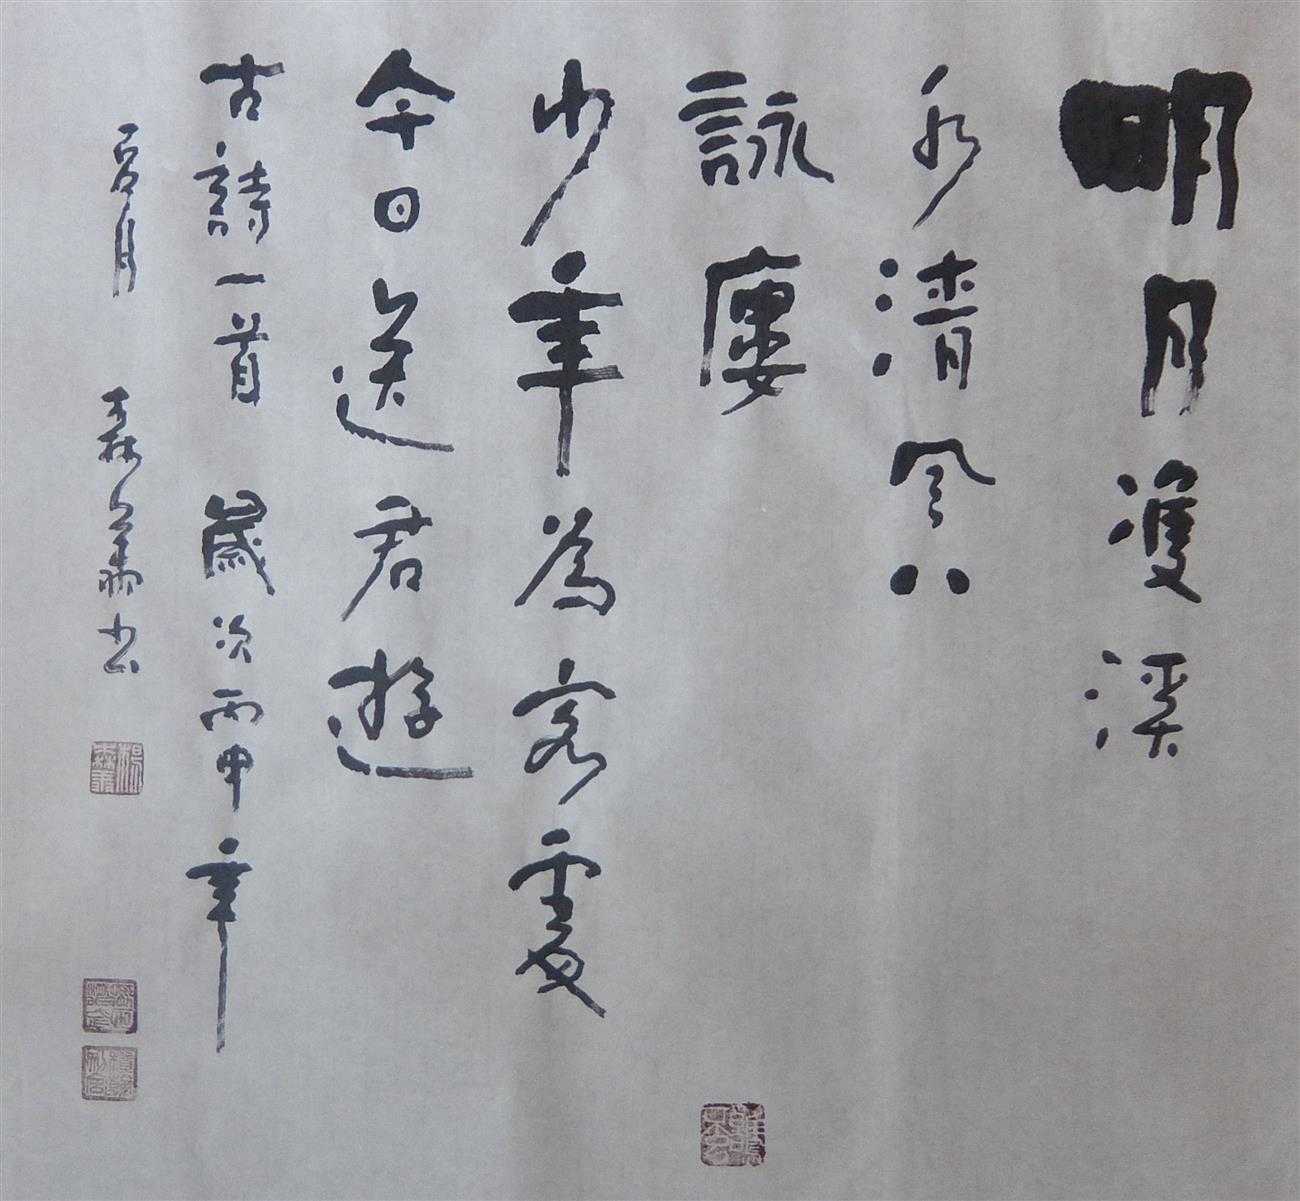 明月雙溪
水清風八
詠廔
少年為客處
今日送君遊
古詩一首 歲次丙申年
夏月 森美書